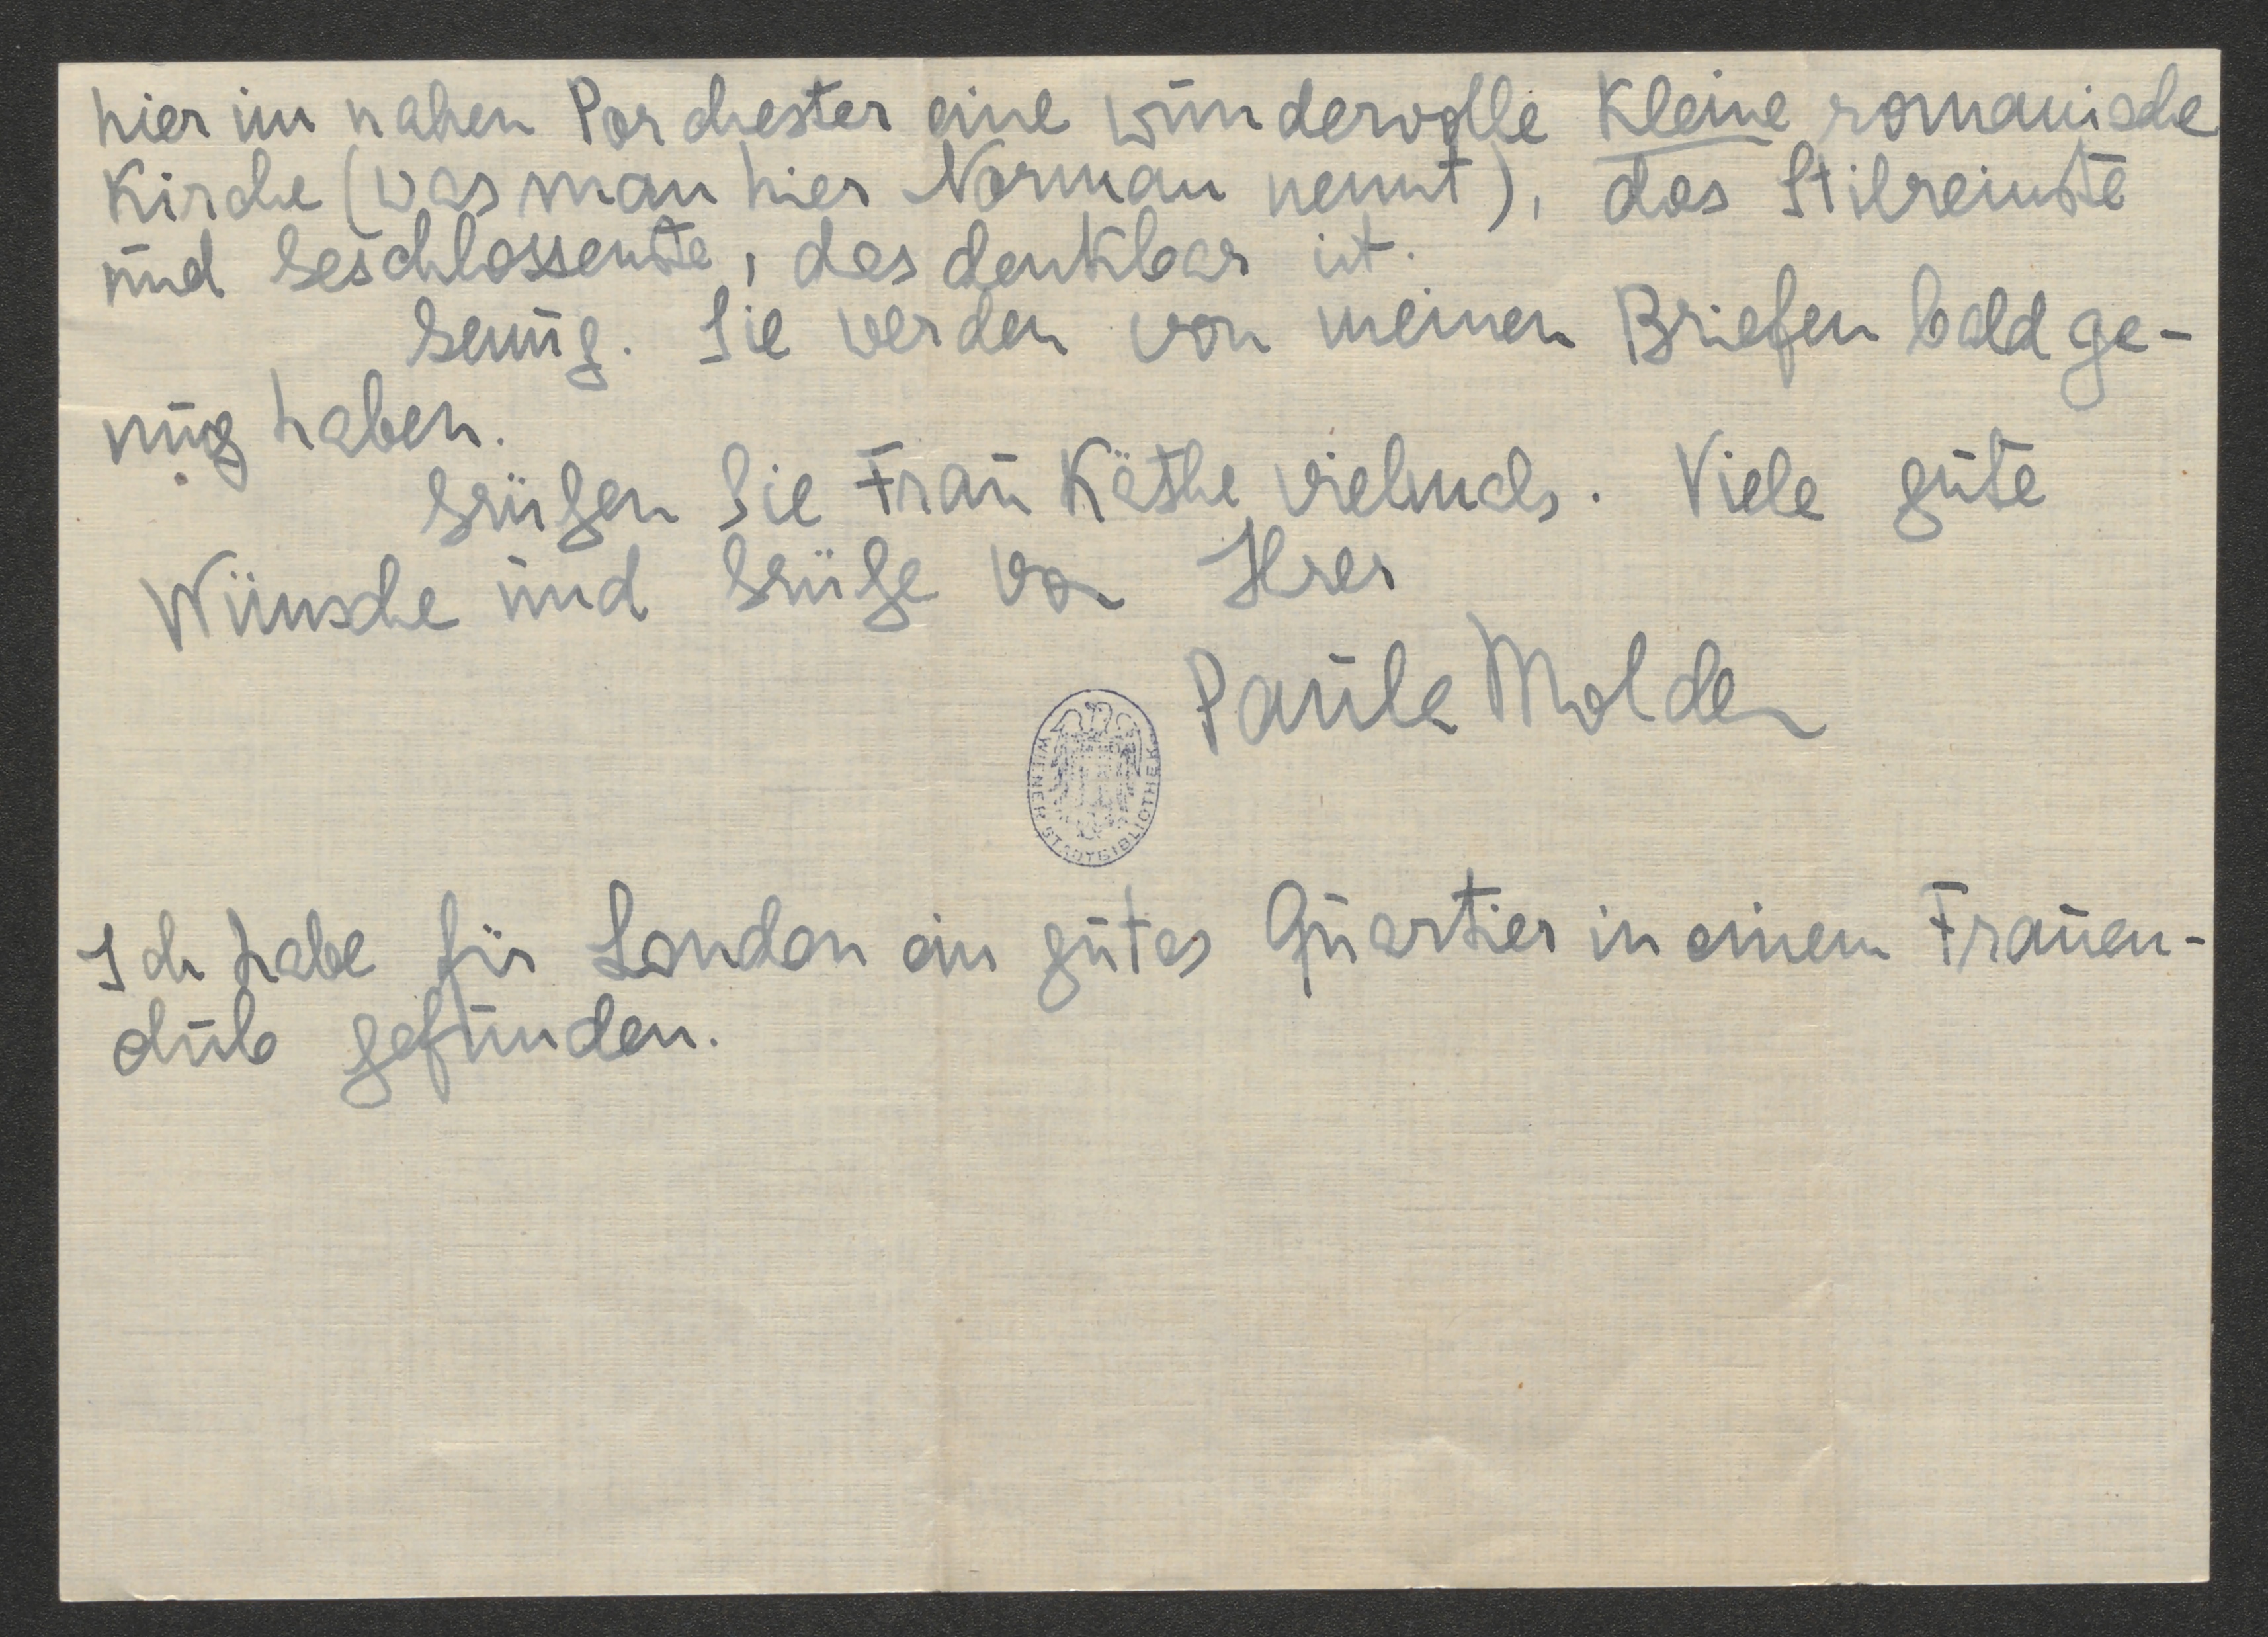 hier im nahen Porchester eine wundervolle kleine romanische
Kirche (was man hier Norman nennt), das Stilreinste
und Geschlossenste, das denkbar ist.
Genug. Sie werden von meinen Briefen bald ge-
nug haben.
Grüßen Sie Frau Käthe vielmals. Viele gute
Wünsche und Grüße von Ihrer
Paula Molden
WIENER STADTBIBLIOTHEK
Ich habe für London ein gutes Quartier in einem Frauen-
club gefunden.